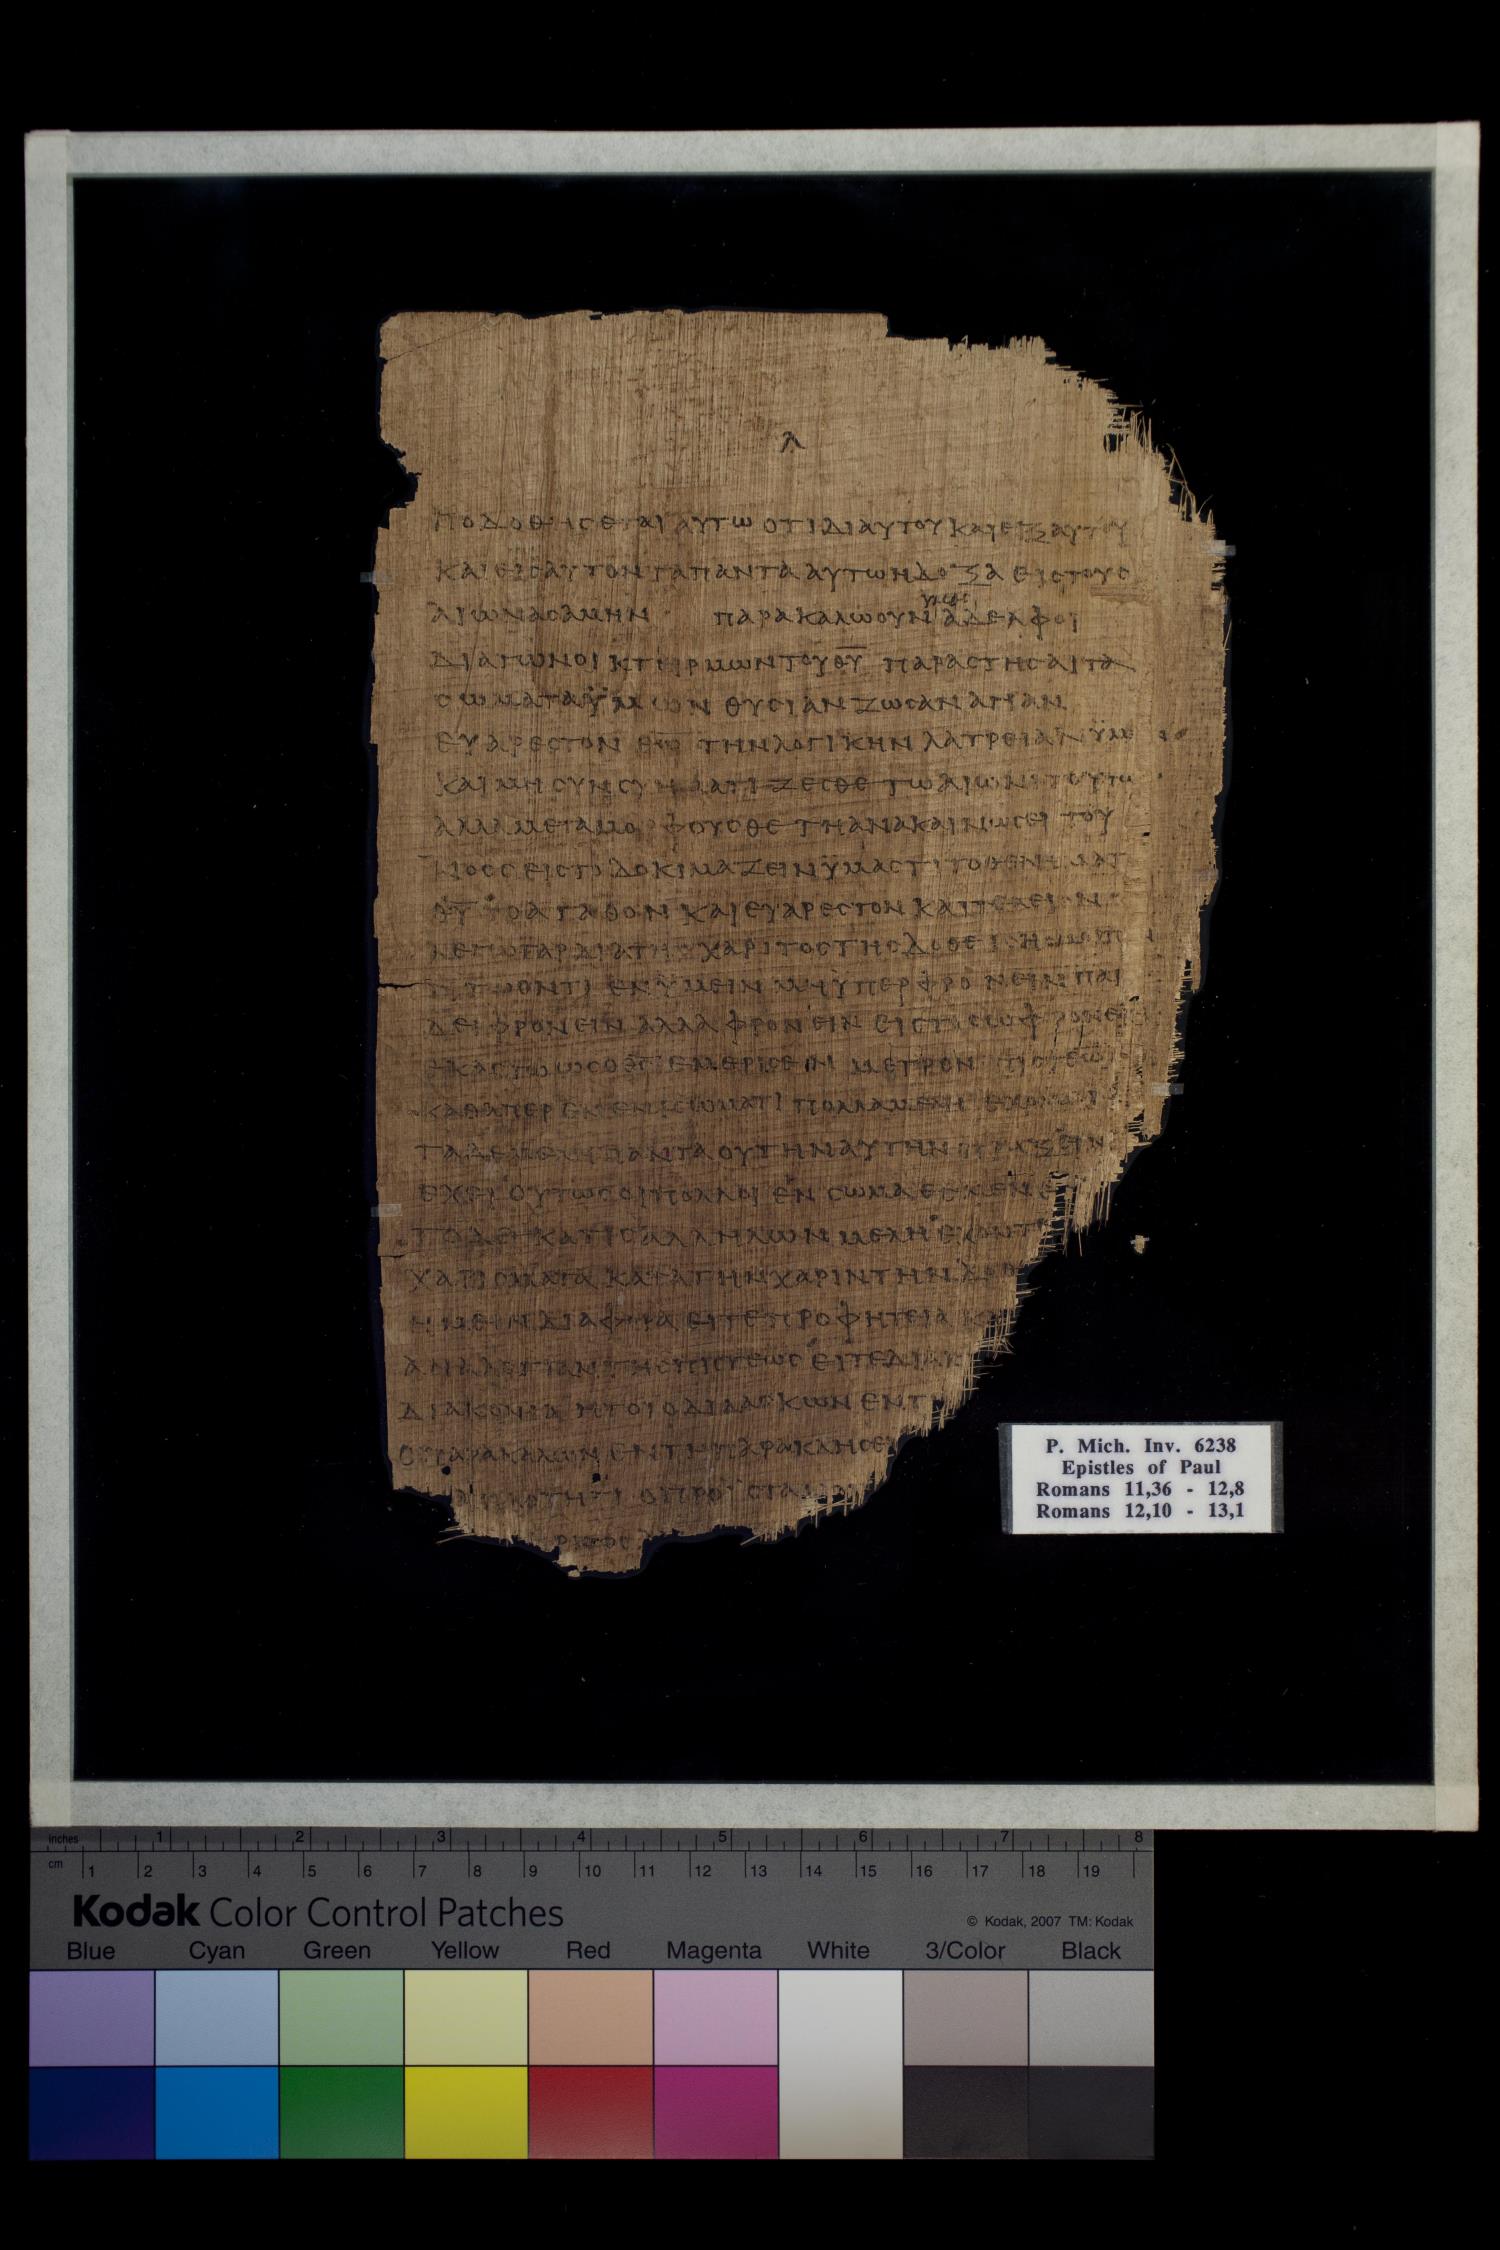 λ
ΠΟΔΟΘΗϹΕΤΑΙ ΑΥΤΩ ΟΤΙ ΔΙ ΑΥΤΟΥ ΚΑΙ ΕΞ ΑΥΤΟΥ
ΚΑΙ ΕΙϹ ΑΥΤΟΝ ΤΑ ΠΑΝΤΑ ΑΥΤΩ Η ΔΟΞΑ ΕΙϹ ΤΟΥϹ
ΥΜΑϹ
ΑΙΩΝΑϹ ΑΜΗΝ ΠΑΡΑΚΑΛΩ ΟΥΝ ΑΔΕΛΦΟΙ
ΔΙΑ ΤΩΝ ΟΙΚΤΙΡΜΩΝ ΤΟΥ Θ̅Υ̅ ΠΑΡΑϹΤΗϹΑΙ ΤΑ
ϹΩΜΑΤΑ ΫΜΩΝ ΘΥϹΙΑΝ ΖΩϹΑΝ ΑΓΙΑΝ
ΕΥΑΡΕϹΤΟΝ Θ̅Ω̅ ΤΗΝ ΛΟΓΙΚΗΝ ΛΑΤΡΕΙΑΝ ΫΜΩ
ΚΑΙ ΜΗ ϹΥΝϹΧΗΜΑΤΙΖΕϹΘΕ ΤΩ ΑΙΩΝΙ ΤΟΥΤΩ
ΑΛΛΑ ΜΕΤΑΜΟΡΦΟΥϹΘΕ ΤΗ ΑΝΑΚΑΙΝΩϹΕΙ ΤΟΥ
ΝΟΟϹ ΕΙϹ ΤΟ ΔΟΚΙΜΑΖΕΙΝ ΫΜΑϹ ΤΙ ΤΟ ΘΕΛΗΜΑ Τ
Θ̅Υ̅ ΤΟ ΑΓΑΘΟΝ ΚΑΙ ΕΥΑΡΕϹΤΟΝ ΚΑΙ ΤΕΛΕΙΟΝ
ΛΕΓΩ ΓΑΡ ΔΙΑ ΤΗϹ ΧΑΡΙΤΟϹ ΤΗϹ ΔΟΘΕΙϹΗϹ
ΤΩ ΟΝΤΙ ΕΝ ΫΜΕΙΝ ΜΗ ΫΠΕΡΦΡΟΝΕΙΝ ΠΑΡ
ΔΕΙ ΦΡΟΝΕΙΝ ΑΛΛΑ ΦΡΟΝΕΙΝ ΕΙϹ ΤΟ ϹΩΦΡΟΝΕΙ
ΕΚΑϹΤΩ ΩϹ Ο Θ̅Ϲ̅ ΕΜΕΡΙϹΕΝ ΜΕΤΡΟΝ ΠΙϹΤΕΩϹ
ΚΑΘΑΠΕΡ ΕΝ ΕΝΙ ϹΩΜΑΤΙ ΠΟΛΛΑ ΜΕΛΗ ΕΧΟΜΕΝ
ΤΑ ΔΕ ΜΕΛΗ ΠΑΝΤΑ ΟΥ ΤΗΝ ΑΥΤΗΝ ΠΡΑΞΕΙΝ
ΕΧΕΙ ΟΥΤΩϹ ΟΙ ΠΟΛΛΟΙ ΕΝ ϹΩΜΑ ΕϹΜΕΝ
ΤΟ ΔΕ ΚΑΘ ΕΙϹ ΑΛΛΗΛΩΝ ΜΕΛΗ ΕΧΟΝΤ
ΧΑΡΙϹΜΑΤΑ ΚΑΤΑ ΤΗΝ ΧΑΡΙΝ ΤΗΝ ΔΟΘ
ΗΜΕΙΝ ΔΙΑΦΟΡΑ ΕΙΤΕ ΠΡΟΦΗΤΕΙΑ ΚΑ
ΑΝΑΛΟΓΙΑΝ ΤΗϹ ΠΙϹΤΕΩϹ ΕΙΤΕ ΔΙΑΚ
ΔΙΑΚΟΝΙΑ ΗΤΟΙ Ο ΔΙΔΑϹΚΩΝ ΕΝ Τ
Ο ΠΑΡΑΚΑΛΩΝ ΕΝ ΤΗ ΠΑΡΑΚΛΗϹΕΙ
ΤΗΤΙ Ο ΠΡΟΪϹΤΑ
P. Mich. Inv. 6238
Epistles of Paul
Romans 11,36 - 12,8
Romans 12,10 - 13,1
inches 1 2 3 4 5 6 7 8
cm 1 2 3 4 5 6 7 8 9 10 11 12 13 14 15 16 17 18 19
Kodak Color Control Patches © Kodak, 2007 TM: Kodak
Blue Cyan Green Yellow Red Magenta White 3/Color Black